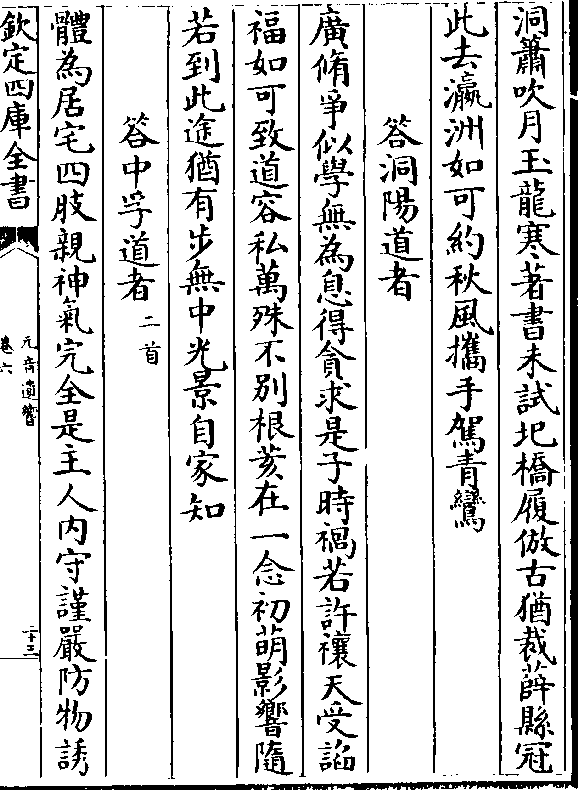 洞簫吹月玉龍寒著書未試圯橋履倣古猶裁薜縣冠
此去瀛洲如可約秋風攜手駕青鸞
答洞陽道者
廣脩爭似學無為息得貪求是子時禍若許禳天受謟
福如可致道容私萬殊不别根荄在一念初萌影響隨
若到此途猶有步無中光景自家知
答中孚道者二首
體為居宅四肢親神氣完全是主人内守謹嚴防物誘
欽定四庫全書
元音遺響
卷六
二十三